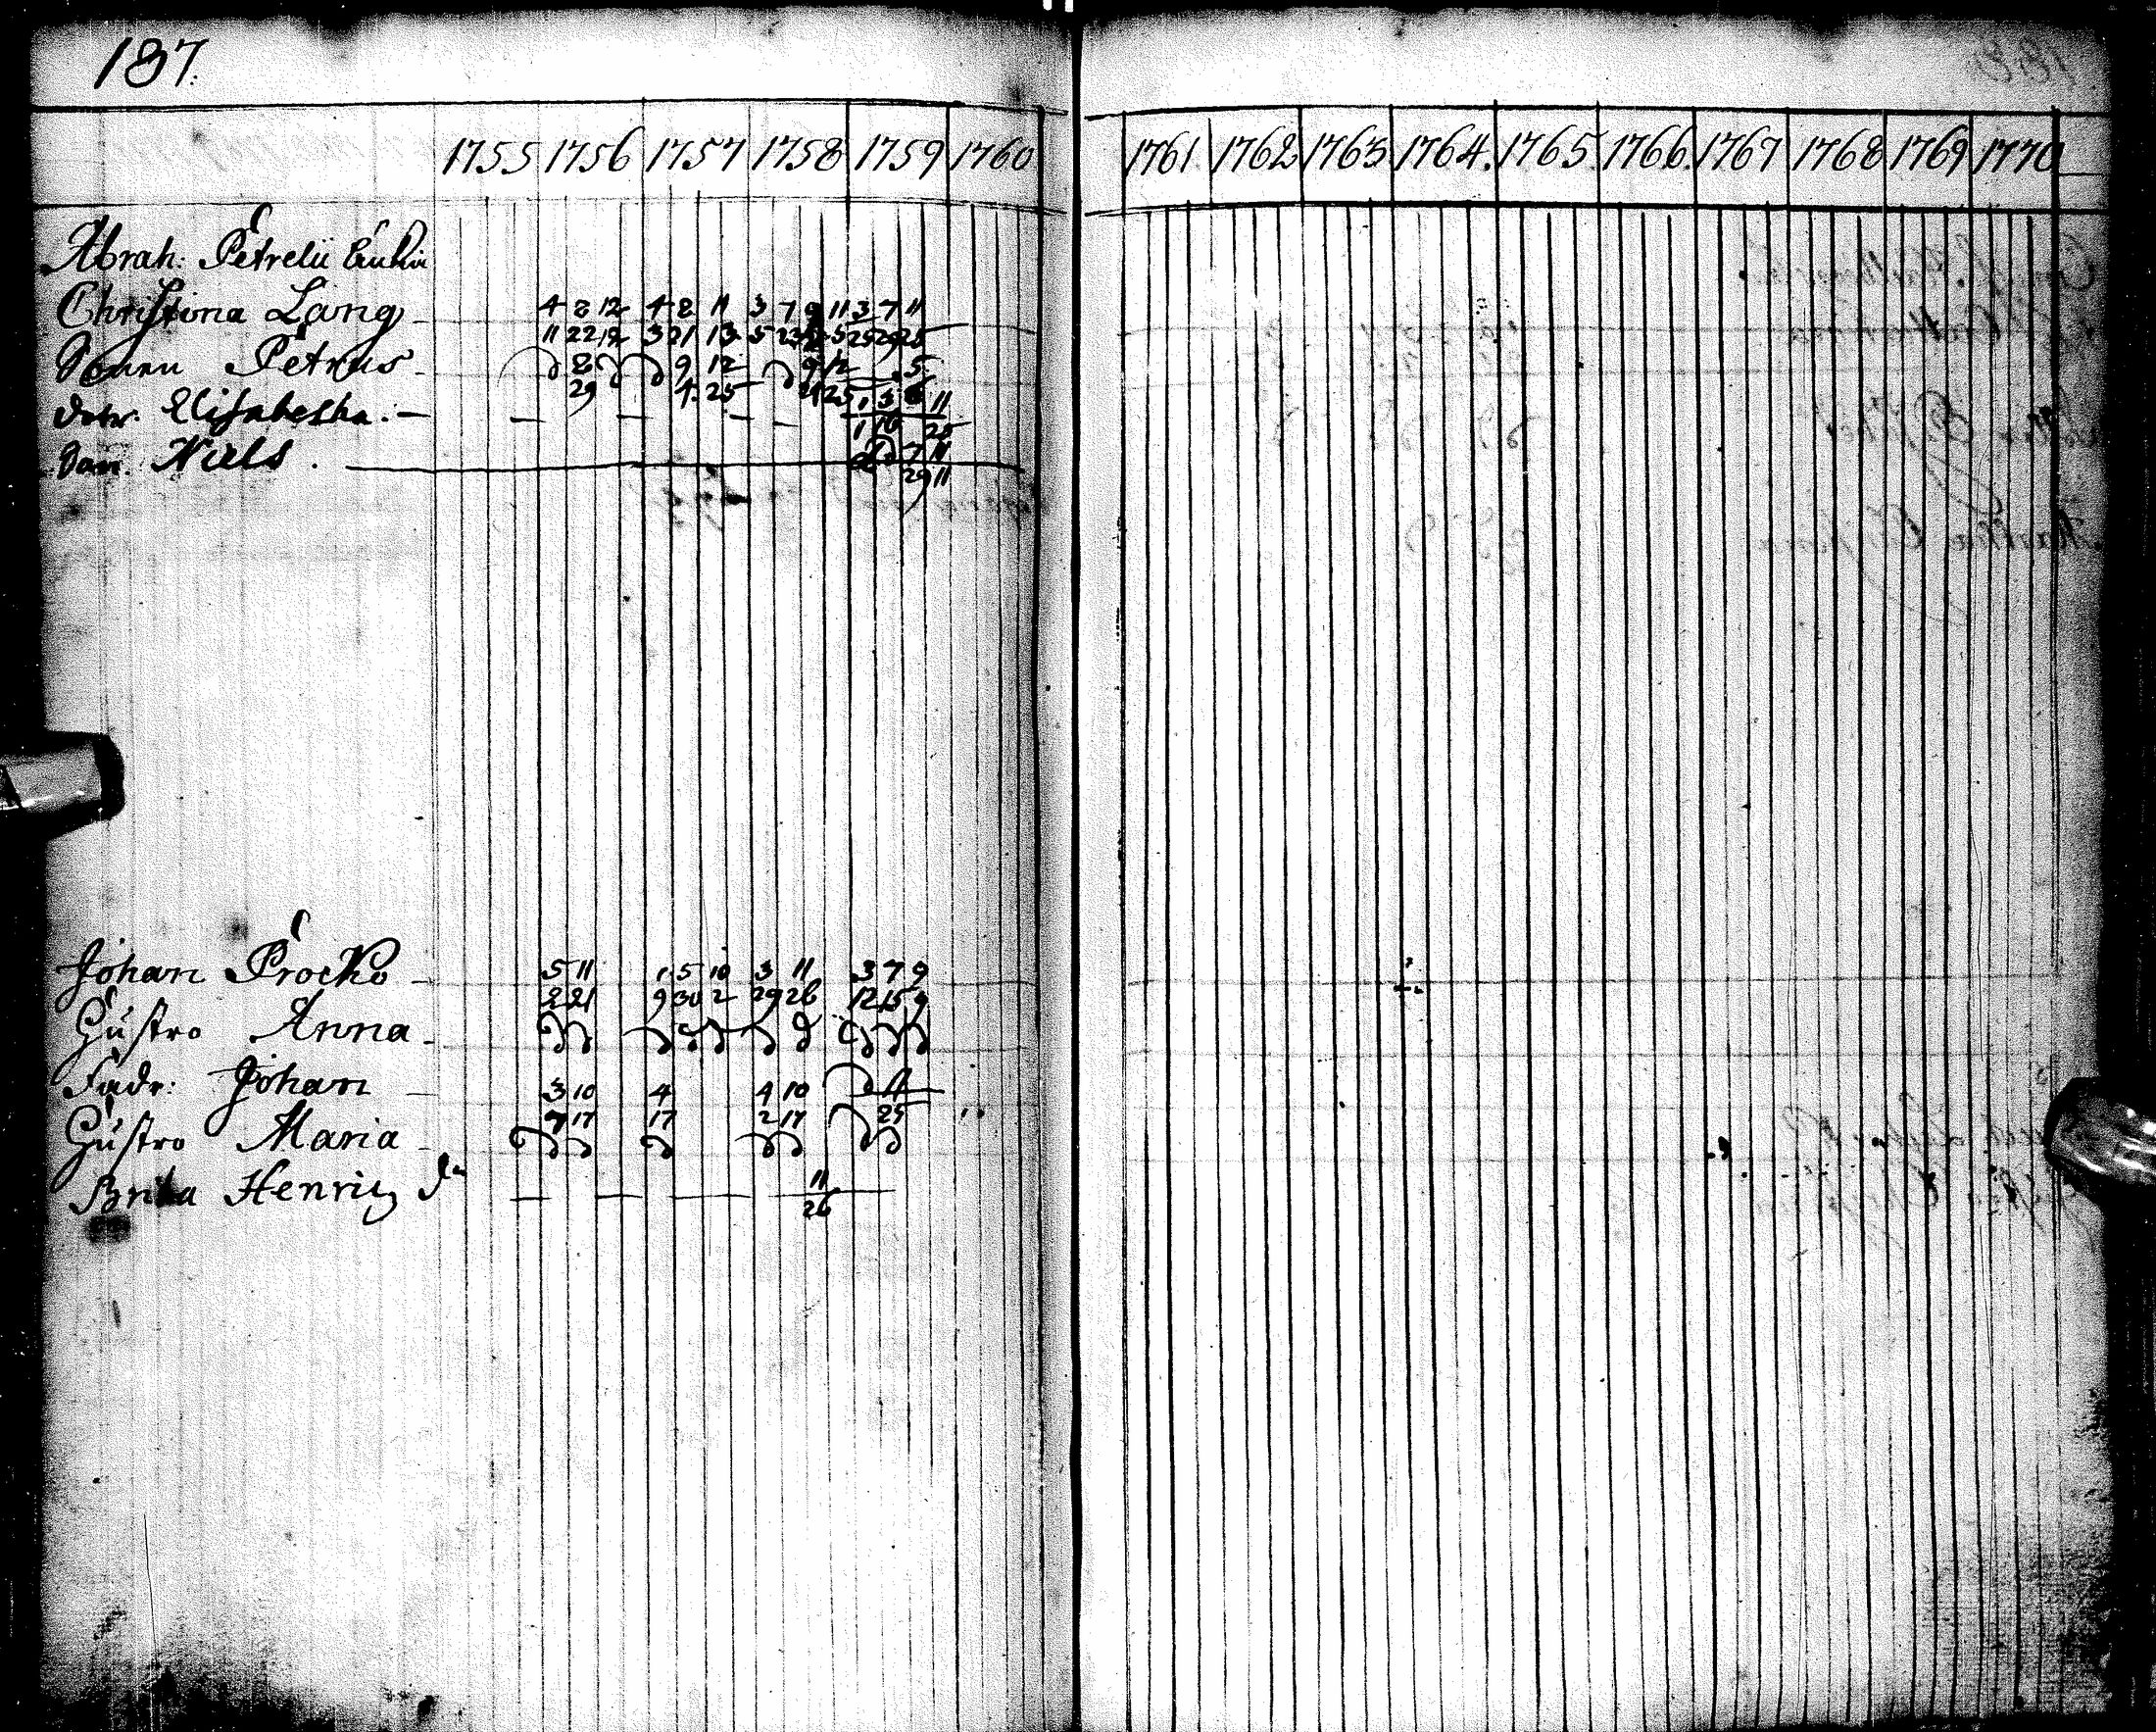 187.
1755 1756 1757 1758 1759 1760 1761 1762 1763 1764. 1765. 1766. 1767 1768 1769 1770
Abrah: Petrelii
Christina Lang 4 8 12 4 8 11 3 7 9 11 3 7 11
11 22 12 3 21 13 5 23 5 25 29 25
Petrus 8 9 12 9 12 5
29 4 25 21 25
dotr: Elisabetha. 1 3 11
1 16 25
Son. Niels. 7 11
29 11
Johan Procko 5 11 1 5 10 3 11 3 7 9
2 21 9 30 2 29 26 12 15 9
Hustro Anna
Fadr: Johan 3 10 4 4 10 11
7 17 17 2 17 25
Hustro Maria
Brita Henriz dr 11
26